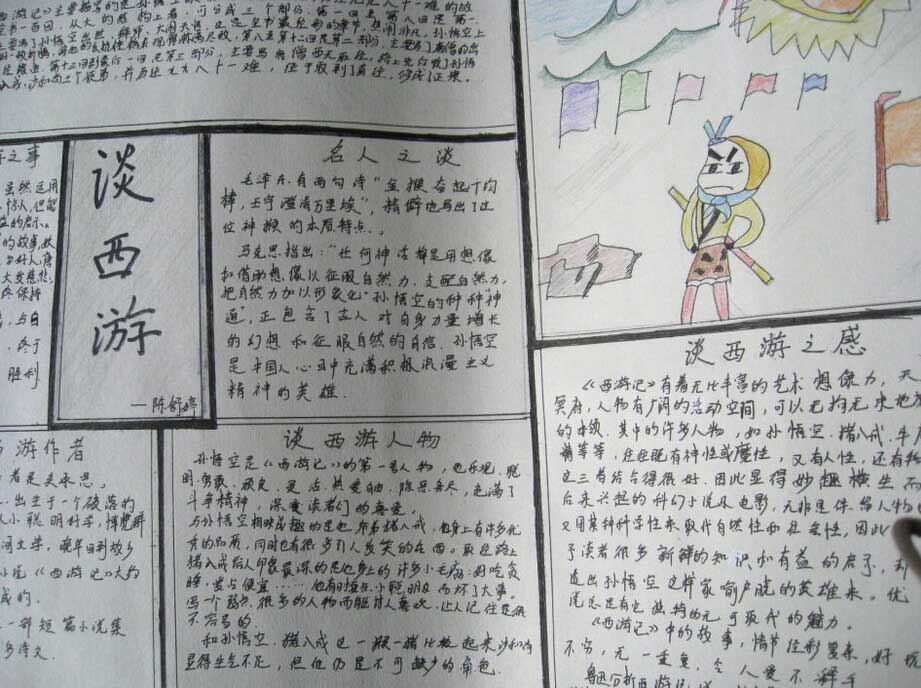 西游记》主要描写的是孙悟
八十一难的故
全书一百回，从大的结构上看，可分成三个部分，第一回至第八回是第一
主要写了孙悟空出世、拜师、大闹天宫，这是全书最精彩的章节，热闹非凡，孙悟空上
第八至第十二回是第二部分，主要写了唐僧的出
第十三回到最后一回是第三部分，主要写唐僧西天取经，路上先后收了孙悟
八戒、沙和尚三个徒弟，并历经九九八十一难，终于取到了真经，修成了正果。
之事
虽然运用
惊人，但能
的启示。
的故事，故
大发慈悲，
终保持
，与自
，终于
胜利
谈西游
——陈舒婷
名人之谈
毛泽东有两句诗“金猴奋起千钧
棒，玉宇澄清万里埃”，精僻地写出了这
位神猴的本质特点。
马克思指出：“任何神话都是用想像
和借助想像以征服自然力，支配自然力，
把自然力加以形象化”孙悟空的种种“神
通”，正包含了古人对自身力量增长
的幻想和征服自然的自信。孙悟空
是中国人心目中充满积极浪漫主义
精神的英雄．
谈西游之感
《西游记》有着无比丰富的艺术想像力，天
冥府，人物有广阔的活动空间，可以无拘无束地
的本领。其中的许多人物，如孙悟空、猪八戒、牛
精等等，往往既有神性或魔性，又有人性，还有
这三者结合得很好．因此显得妙趣横生而
后来兴起的科幻小说及电影，无非是体给人物
又用某种科学性来取代自然性和社会性，因此
予读者很多新鲜的知识和有益的启示，却
造出孙悟空这样家喻户晓的英雄来。优
说总是有它独特的无可取代的魅力。
《西游记》中的故事，情节经彩复杂，好
不穷，无一重复，令人爱不释手
鲁迅分析西游记
游作者
者是吴承恩。
出生于一个破落的
人小聪明好学，博览群
间文学，晚年回到故乡
小说《西游记》大约
成的．
一部短篇小说集
多诗文．
谈西游人物
孙悟空是《西游记》的第一号人物，他乐观、聪
明、勇敢、顽皮、灵活、热爱自由、除恶务尽，充满了
斗争精神，深受读者们的喜爱。
与孙悟空相映成趣的是他师弟猪八戒．他身上有许多优
秀的品质，同时也有很多引人发笑的东西。取经路上
猪八戒给人印象最深的是他身上的许多小毛病：好吃贪
睡、爱占便宜……他有时搞点小聪明反而坏了大事。
写一个弱点很多的人物而能讨人喜欢，让人记住是很
不容易的．
和孙悟空、猪八戒这一猴一猪比较起来沙和尚
显得生气不足，但他仍是不可缺少的角色．